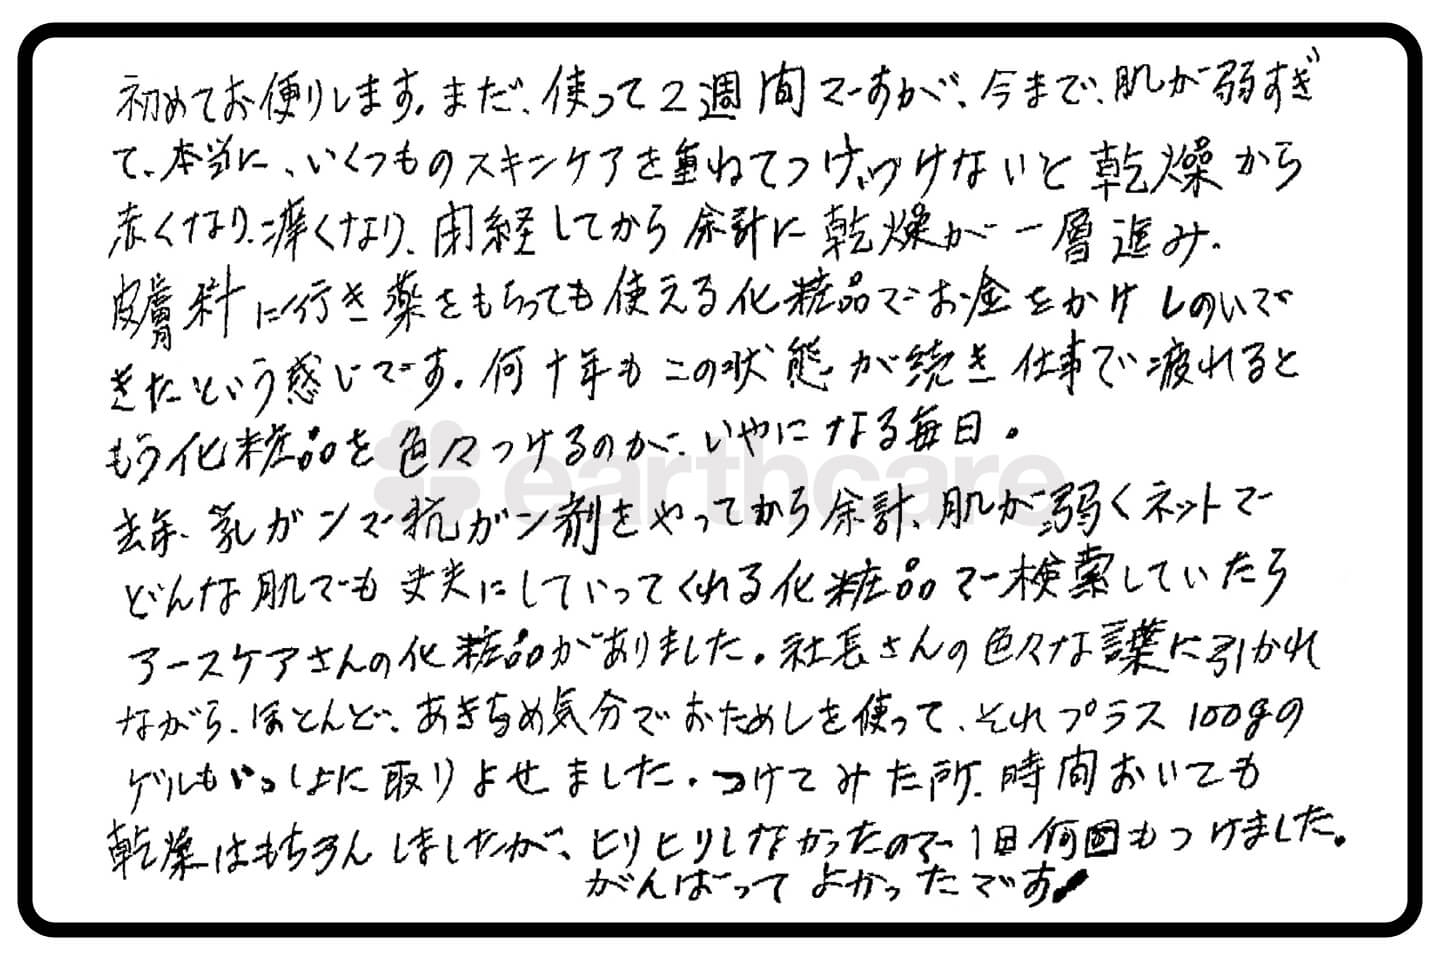 初めてお便りします。まだ、使って2週間ですが、今まで、肌が弱すぎ
て、本当に、いくつものスキンケアを重ねてつけつづけないと乾燥から
赤くなり、痒くなり、閉経してから余計に乾燥が一層進み、
皮膚科に行き薬をもらっても使える化粧品でお金をかけしのいで
きたという感じです。何十年もこの状態が続き仕事で疲れると
もう化粧品を色々つけるのが、いやになる毎日。
earthcare
去年、乳ガンで抗ガン剤をやってから余計、肌が弱くネットで
どんな肌でも丈夫にしていってくれる化粧品で検索していたら
アースケアさんの化粧品がありました。社長さんの色々な言葉に引かれ
ながら、ほとんど、あきらめ気分でおためしを使って、それプラス100gの
ゲルもいっしょに取りよせました。つけてみた所、時間おいても
乾燥はもちろんしましたが、ヒリヒリしなかったので1日何回もつけました。
がんばってよかったです!